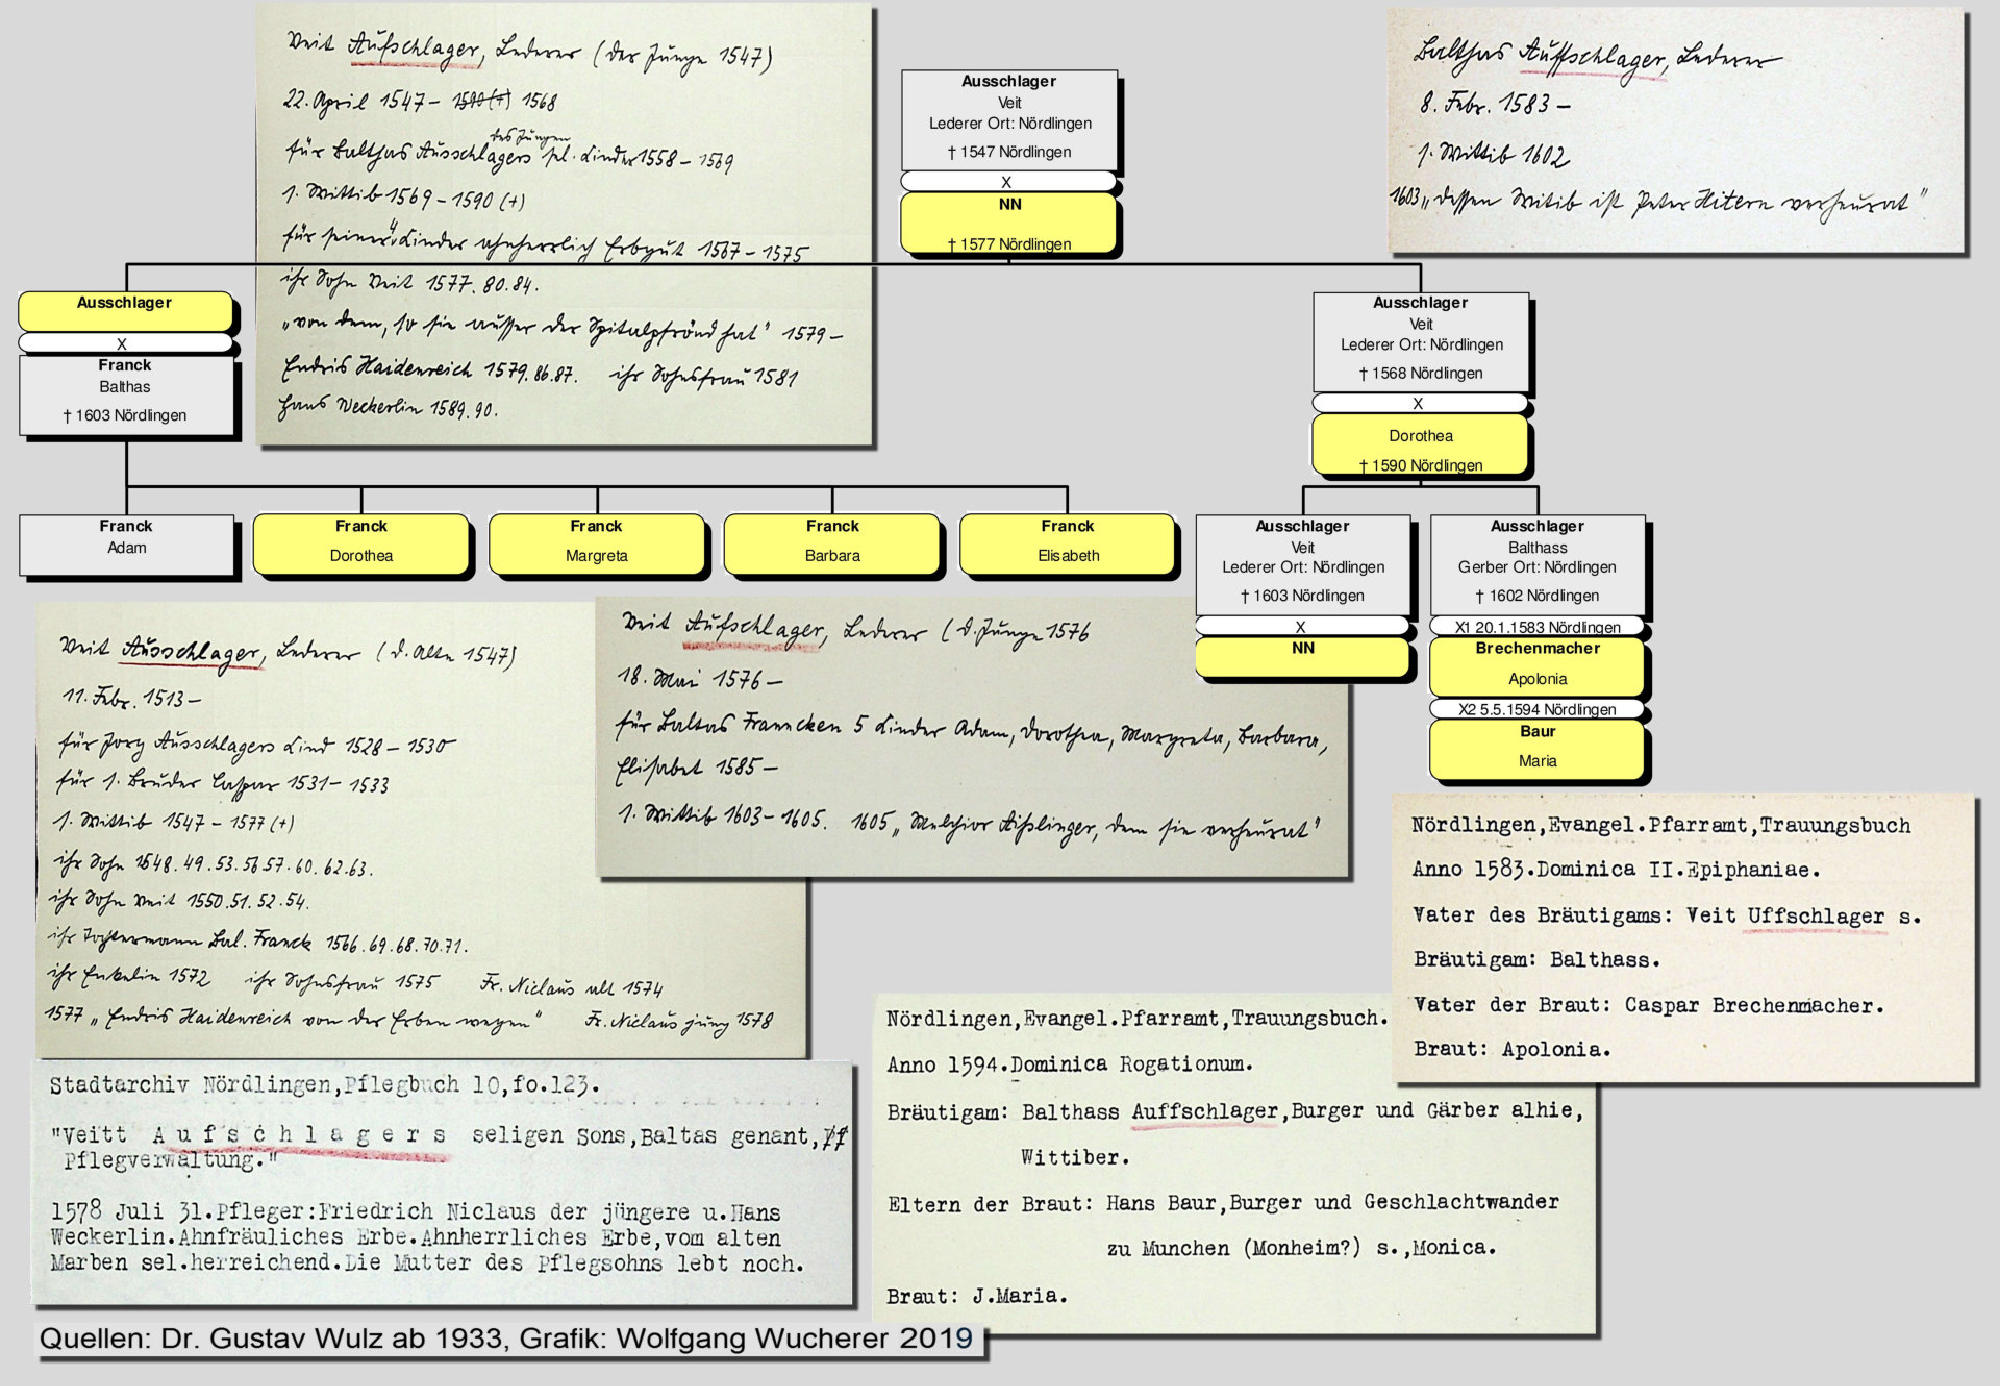 Veit Aufschlager, Lederer (der Junge 1547)
22. April 1547 – 1590 (+) 1568
des Jungen
für Balthas Ausschlagers sel. Kinder 1558 – 1569
1. Wittib 1569 – 1590 (+)
für seiner 4 Kinder ahnherrlich Erbgut 1567 – 1575
ihr Sohn Veit 1577. 80. 84.
„von dem, so sie ausser der Spitalpfrönd hat" 1579 –
Endris Haidenreich 1579. 86. 87. ihr Sohnsfrau 1581
Hans Weckerlin 1589. 90.
Ausschlager
Veit
Lederer Ort: Nördlingen
† 1547 Nördlingen
X
NN
† 1577 Nördlingen
Balthas Auffschlager, Lederer
8. Febr. 1583 –
1. Wittib 1602
1603 „dessen Witib ist Peter Hitern verheurat"
Ausschlager
X
Franck
Balthas
† 1603 Nördlingen
Ausschlager
Veit
Lederer Ort: Nördlingen
† 1568 Nördlingen
X
Dorothea
† 1590 Nördlingen
Franck
Adam
Franck
Dorothea
Franck
Margreta
Franck
Barbara
Franck
Elisabeth
Ausschlager
Veit
Lederer Ort: Nördlingen
† 1603 Nördlingen
X
NN
Ausschlager
Balthass
Gerber Ort: Nördlingen
† 1602 Nördlingen
X1 20.1.1583 Nördlingen
Brechenmacher
Apolonia
X2 5.5.1594 Nördlingen
Baur
Maria
Veit Ausschlager, Lederer (d. Alte 1547)
11. Febr. 1513 –
für Jorg Ausschlagers Kind 1528 – 1530
für 1. Bruder Caspar 1531 – 1533
1. Wittib 1547 – 1577 (+)
ihr Sohn 1548. 49. 53. 56. 57. 60. 62. 63.
ihr Sohn Veit 1550. 51. 52. 54.
ihr Tochtermann Bal. Franck 1566. 69. 68. 70. 71.
ihr Enkelin 1572 ihr Sohnsfrau 1575 Fr. Niclaus alt 1574
1577 „Endris Haidenreich von der Erben wegen" Fr. Niclaus jung 1578
Veit Aufschlager, Lederer (d. Junge 1576
18. Mai 1576 –
für Baltas Franncken 5 Kinder Adam, Dorothea, Margreta, Barbara,
Elisabet 1585 –
1. Wittib 1603 – 1605. 1605 „Melchior Aißlinger, dem sie verheurat"
Nördlingen,Evangel.Pfarramt,Trauungsbuch
Anno 1583.Dominica II.Epiphaniae.
Vater des Bräutigams: Veit Uffschlager s.
Bräutigam: Balthass.
Vater der Braut: Caspar Brechenmacher.
Braut: Apolonia.
Nördlingen,Evangel.Pfarramt,Trauungsbuch.
Anno 1594.Dominica Rogationum.
Bräutigam: Balthass Auffschlager,Burger und Gärber alhie,
Wittiber.
Eltern der Braut: Hans Baur,Burger und Geschlachtwander
zu Munchen (Monheim?) s.,Monica.
Braut: J.Maria.
Stadtarchiv Nördlingen,Pflegbuch 10,fo.123.
"Veitt Aufschlagers seligen Sons,Baltas genant,
Pflegverwaltung."
1578 Juli 31.Pfleger:Friedrich Niclaus der jüngere u.Hans
Weckerlin.Ahnfräuliches Erbe.Ahnherrliches Erbe,vom alten
Marben sel.herreichend.Die Mutter des Pflegsohns lebt noch.
Quellen: Dr. Gustav Wulz ab 1933, Grafik: Wolfgang Wucherer 2019